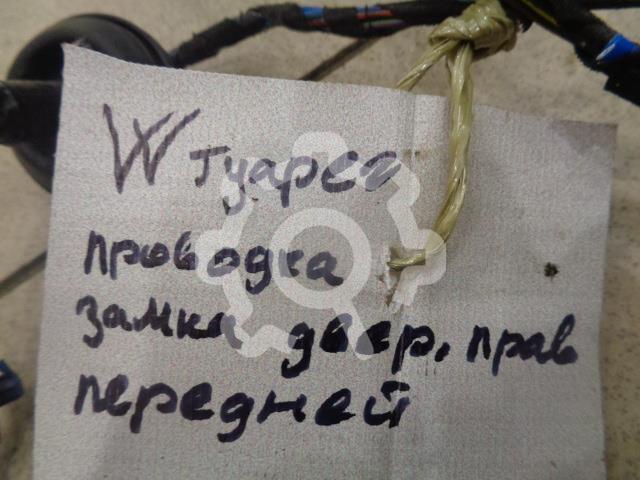 W Туарег
проводка
замка двер, прав
передней